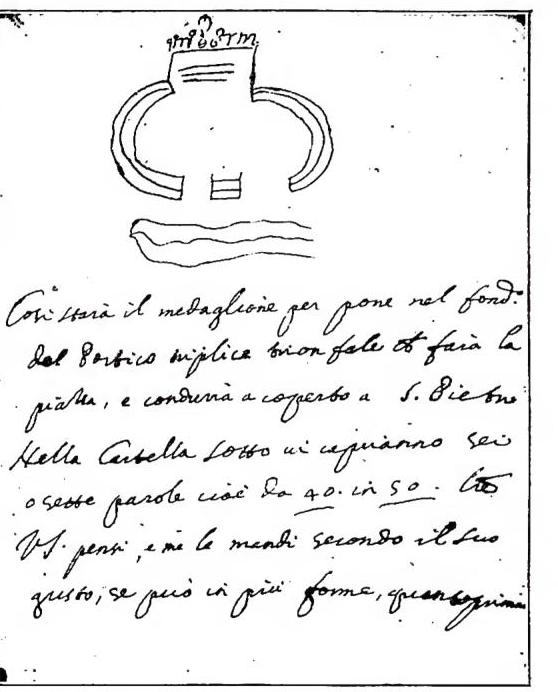 Così starà il medaglione per pone nel fond.º
del Portico triplice trionfale ch farà la
piazza, e condurrà a coperto a S. Pietro
Nella Cartella sotto vi capiranno sei
o sette parole cioè da 40. in 50.
VS. pensi, e me le mandi secondo il suo
gusto, se può in più forme, quanto prima